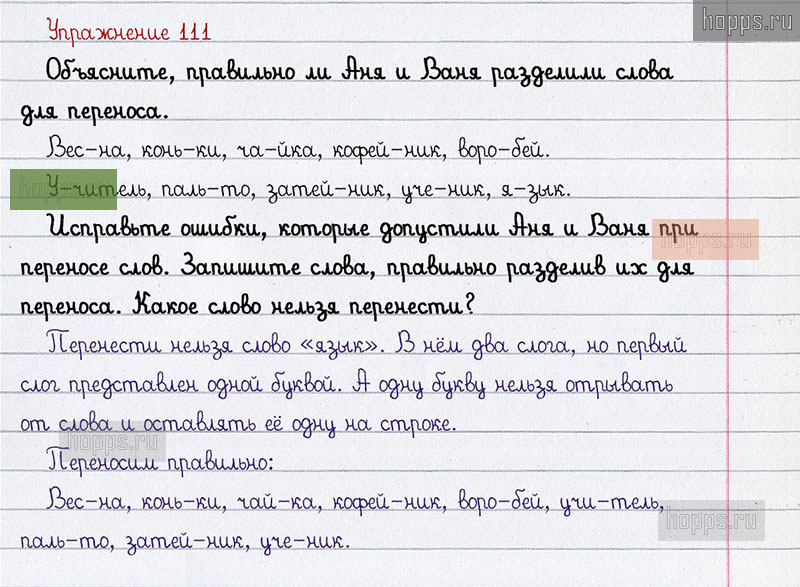 hopps.ru
Упражнение 111
Объясните, правильно ли Аня и Ваня разделили слова
для переноса.
Вес-на, конь-ки, ча-йка, кофей-ник, воро-бей.
У-читель, паль-то, затей-ник, уче-ник, я-зык.
hopps.ru
Исправьте ошибки, которые допустили Аня и Ваня при
hopps.ru
переносе слов. Запишите слова, правильно разделив их для
переноса. Какое слово нельзя перенести?
Перенести нельзя слово «язык». В нём два слога, но первый
слог представлен одной буквой. А одну букву нельзя отрывать
от слова и оставлять её одну на строке.
hopps.ru
Переносим правильно:
Вес-на, конь-ки, чай-ка, кофей-ник, воро-бей, учи-тель,
hopps.ru
паль-то, затей-ник, уче-ник.